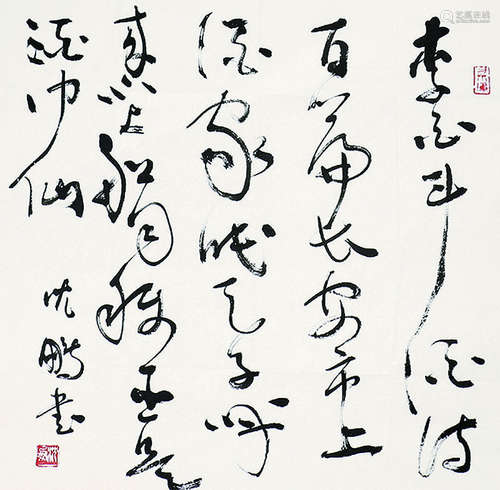 李白斗酒诗
百篇长安市上
酒家眠天子呼
来不上船自称臣是
酒中仙
沈鹏书